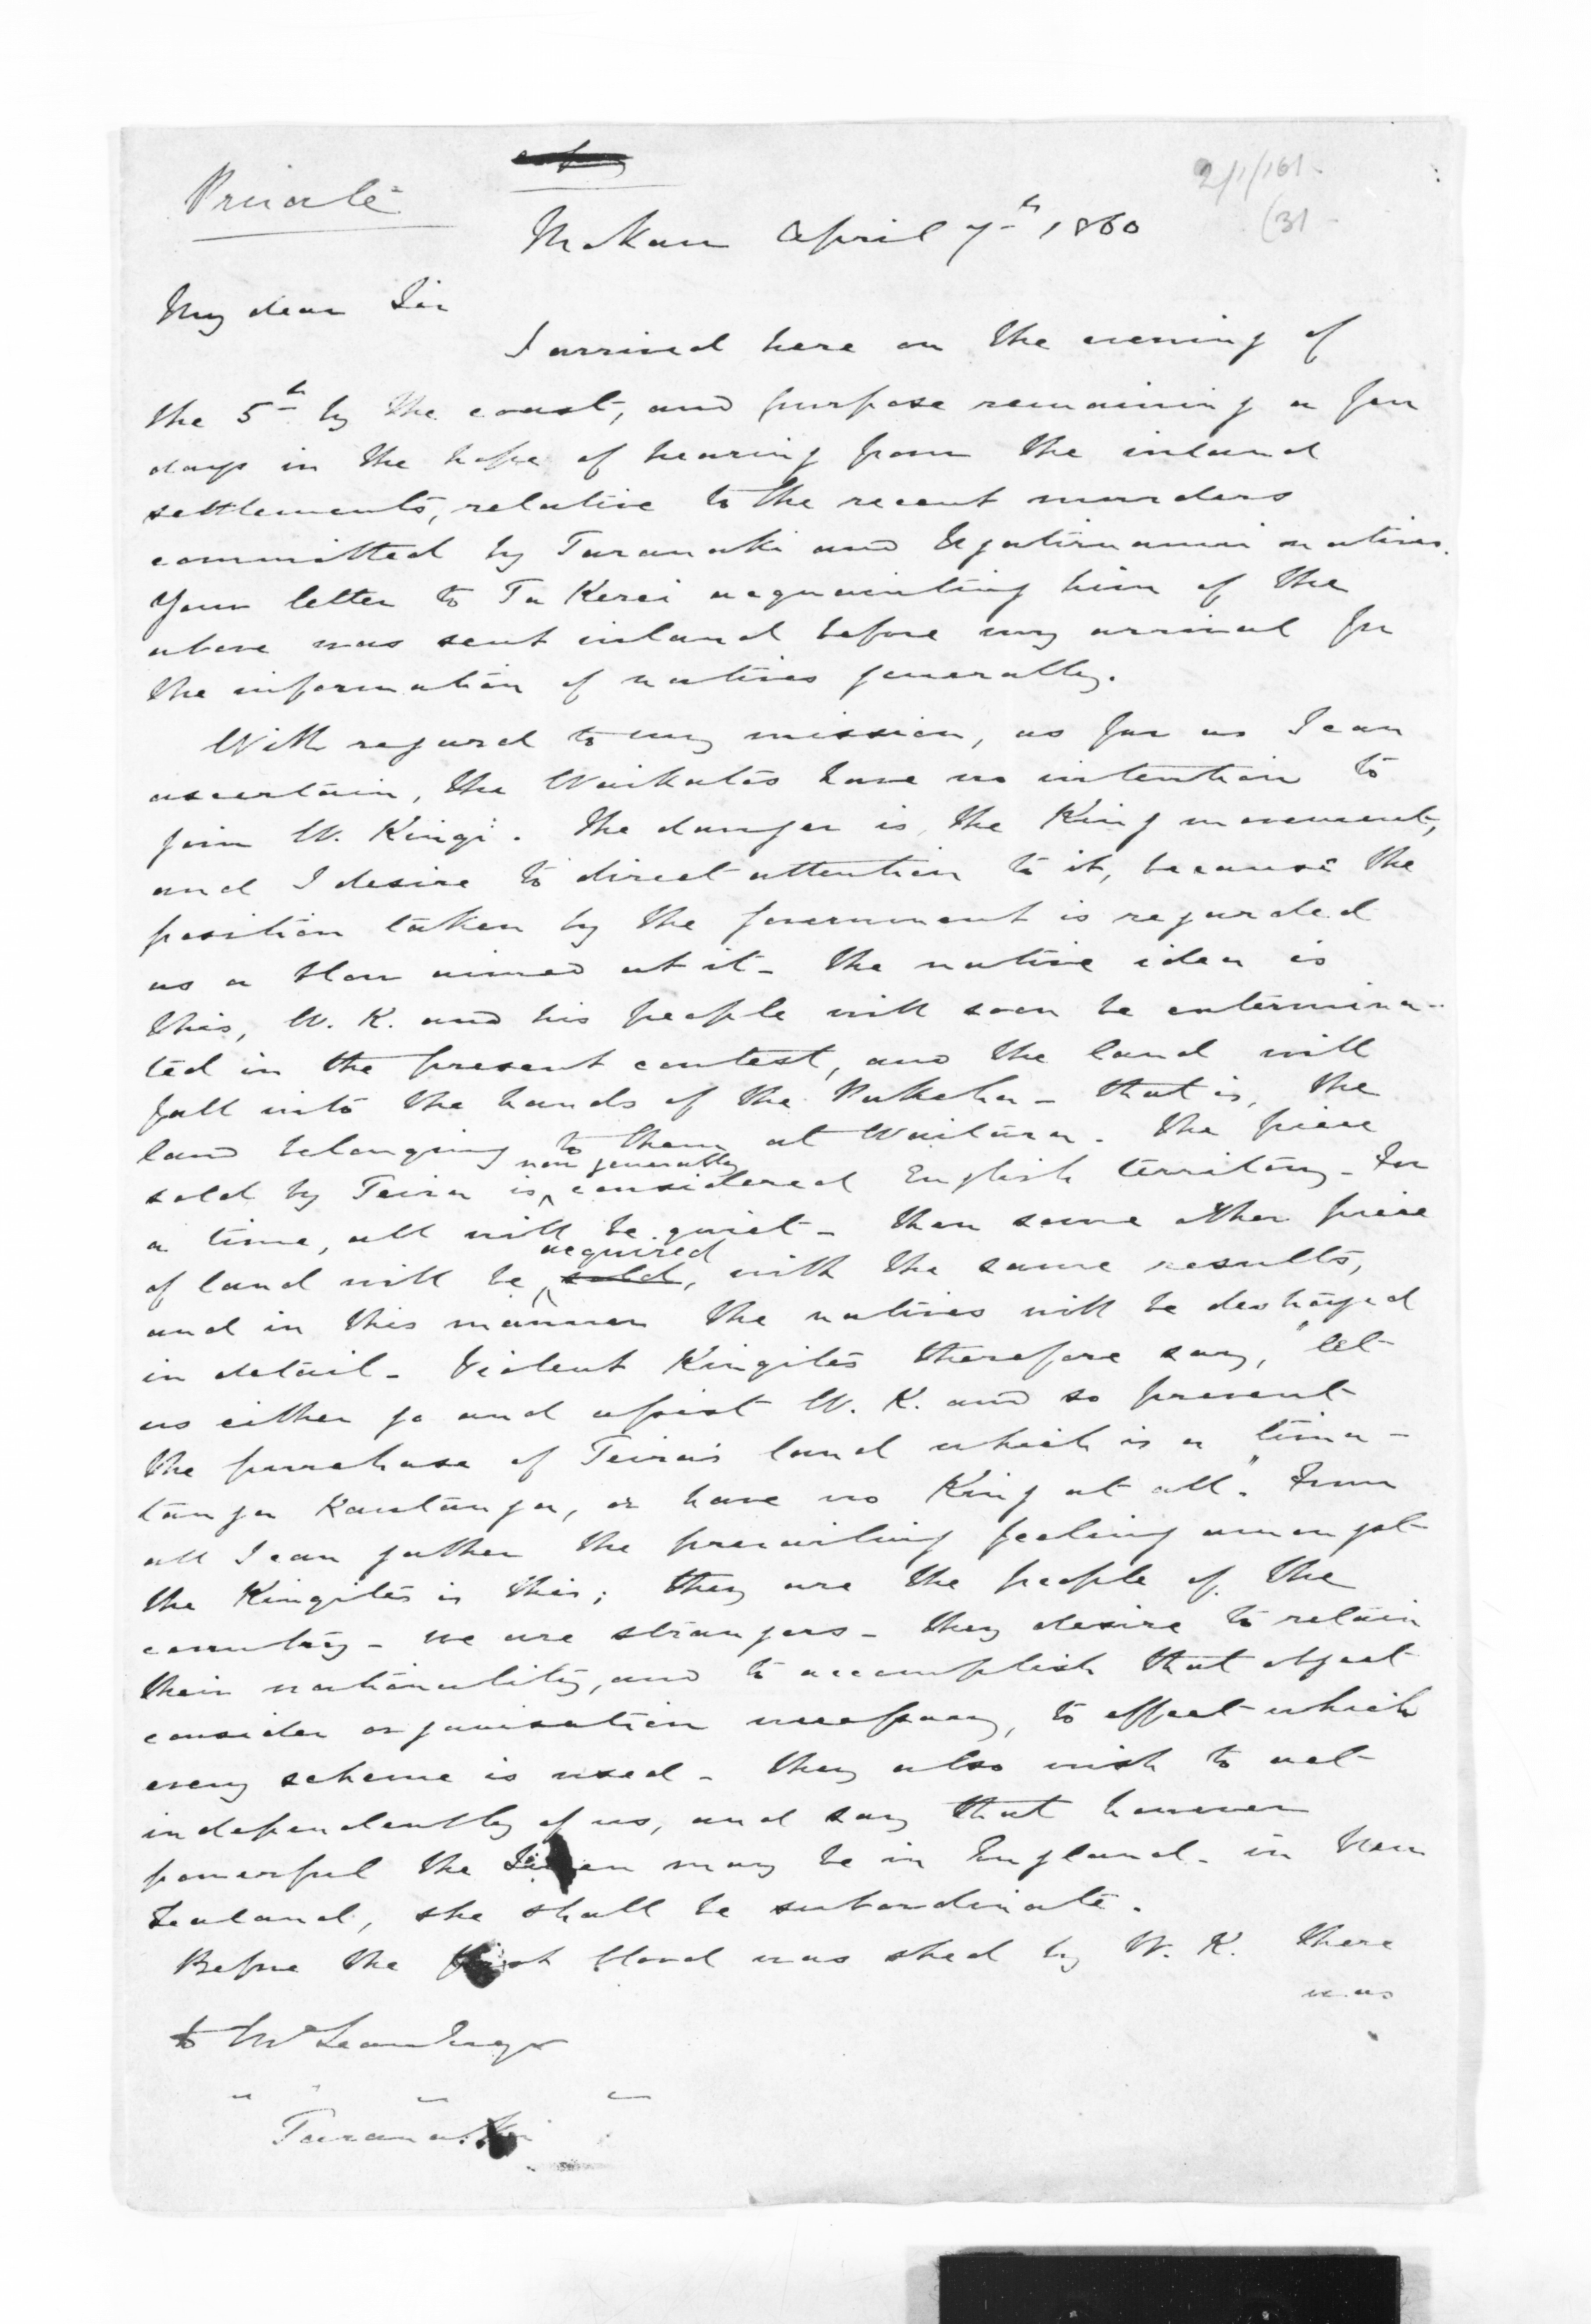 Private
Mokau April 7th 1860
2/1/161
(31
My dear Sir
I arrived here on the evening of
the 5th by the coast, and purpose remaining a few
days in the hope of hearing from the inland
settlements, relative to the recent murders
committed by Taranaki and Ngatiruanui natives.
Your letter to Ta Kerei acquainting him of the
above was sent inland before my arrival for
the information of natives generally.
With regard to my mission, as far as I can
ascertain, the Waikatos have no intention to
join W. Kingi. The danger is, the King movement,
and I desire to direct attention to it, because the
position taken by the government is regarded
as a blow aimed at it - The native idea is
this, W. K. and his people will soon be extermina-
ted in the present contest, and the land will
fall into the hands of the Pakeha - that is, the
land belonging to them at Waitara. The piece
now generally
sold by Teira is considered English territory - For
a time, all will be quiet - then some other piece
acquired
of land will be sold, with the same results,
and in this manner the natives will be destroyed
in detail - Violent Kingites therefore say, "let
us either go and assist W. K. and so prevent
the purchase of Teira's land which is a tima-
tanga kautanga, or have no King at all." From
all I can gather the prevailing feeling amongst
the Kingites is this; they are the people of the
country - we are strangers - they desire to retain
their nationality, and to accomplish that object
consider organisation necessary, to effect which
every scheme is used - They also wish to act
independently of us, and say that however
powerful the Queen may be in England - in New
Zealand, she shall be subordinate.
Before the first blood was shed by W. K. there
was
to McLean Esqr
Taranaki